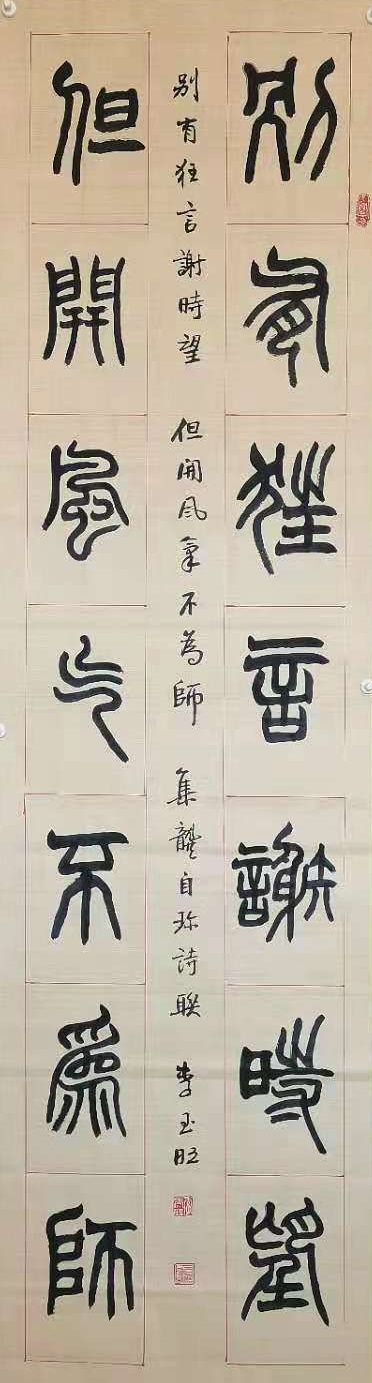 别有狂言謝時望
别有狂言謝時望 但開风氣不為師 集龔自珍詩联 李玉旺
但開風气不為師